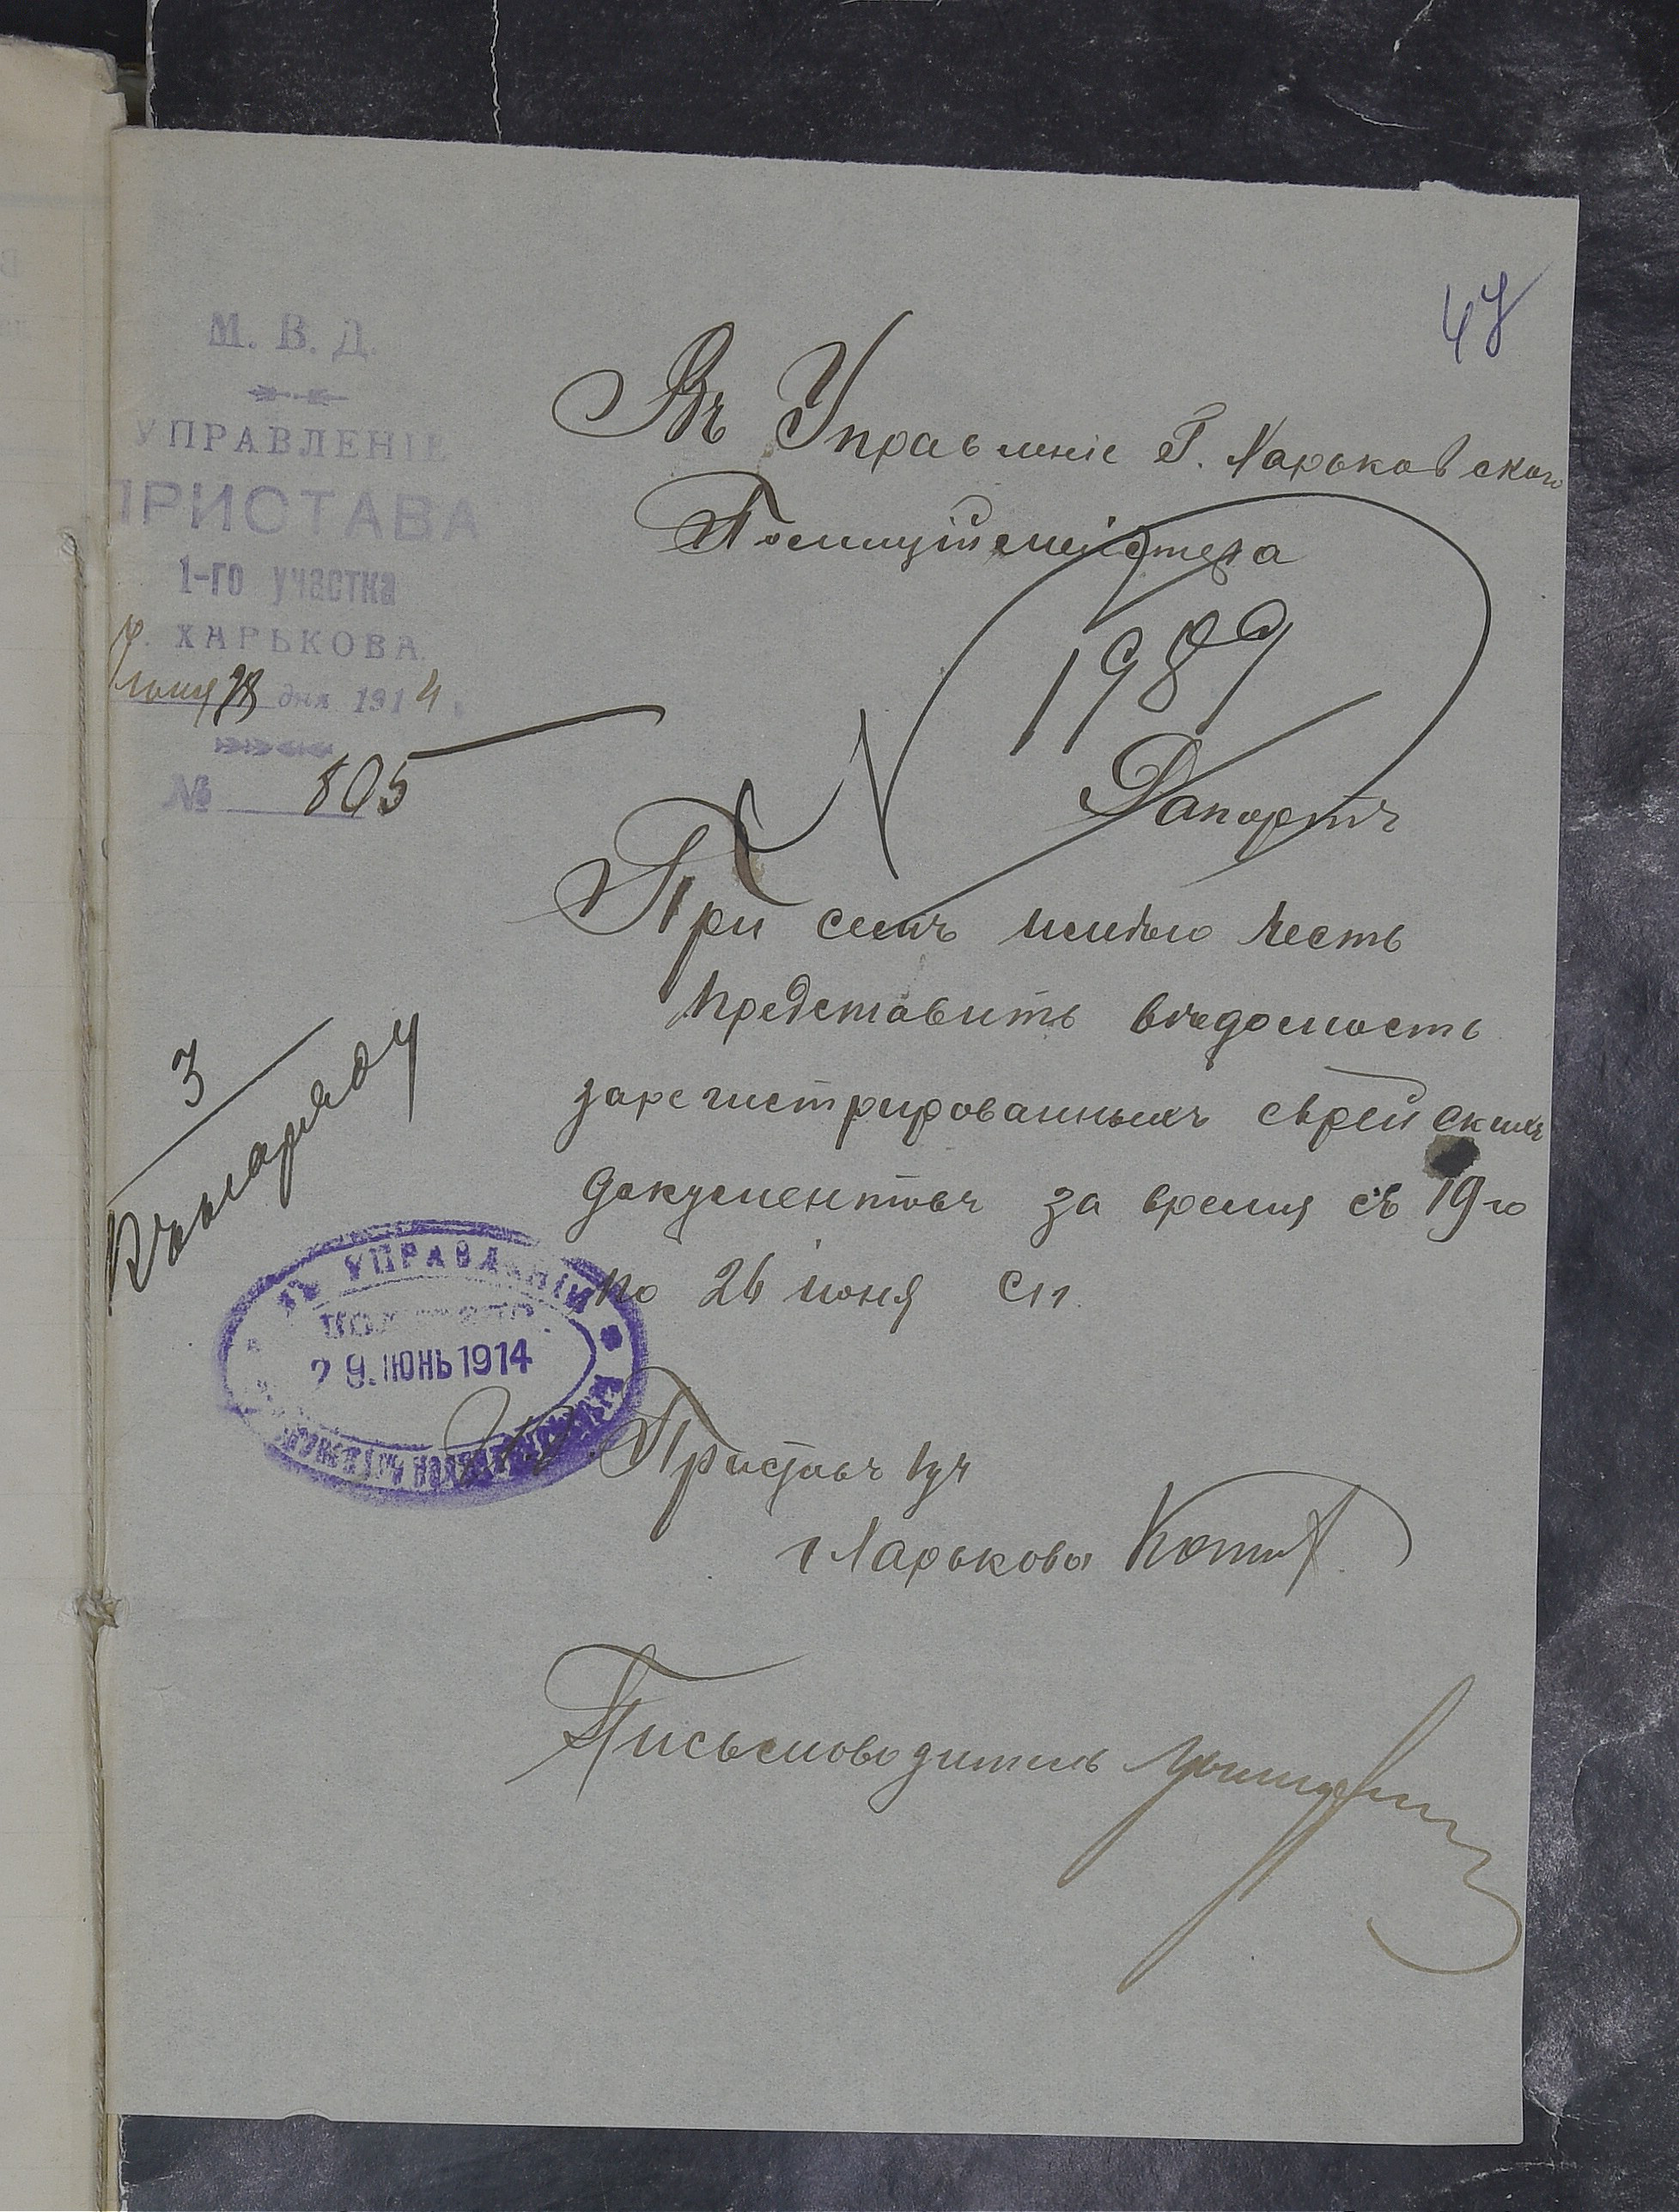 47
М. В. Д.
УПРАВЛЕНІЕ
ПРИСТАВА
1-го участка
Г. ХАРЬКОВА.
Іюня 28 дня 1914 г.
№ 805
Въ Управленіе Г. Харьковскаго
Полиціймейстера
1989
Рапортъ
При семъ имѣю честь
представить вѣдомость
зарегистрированныхъ еврейскихъ
документовъ за время съ 19го
по 26 іюня с.г.
3
Къ наряду
ВЪ УПРАВЛЕНІИ
ПОЛУЧЕНО
29. ІЮНЬ 1914
Приставъ 1 уч
г Харькова
Письмоводитель